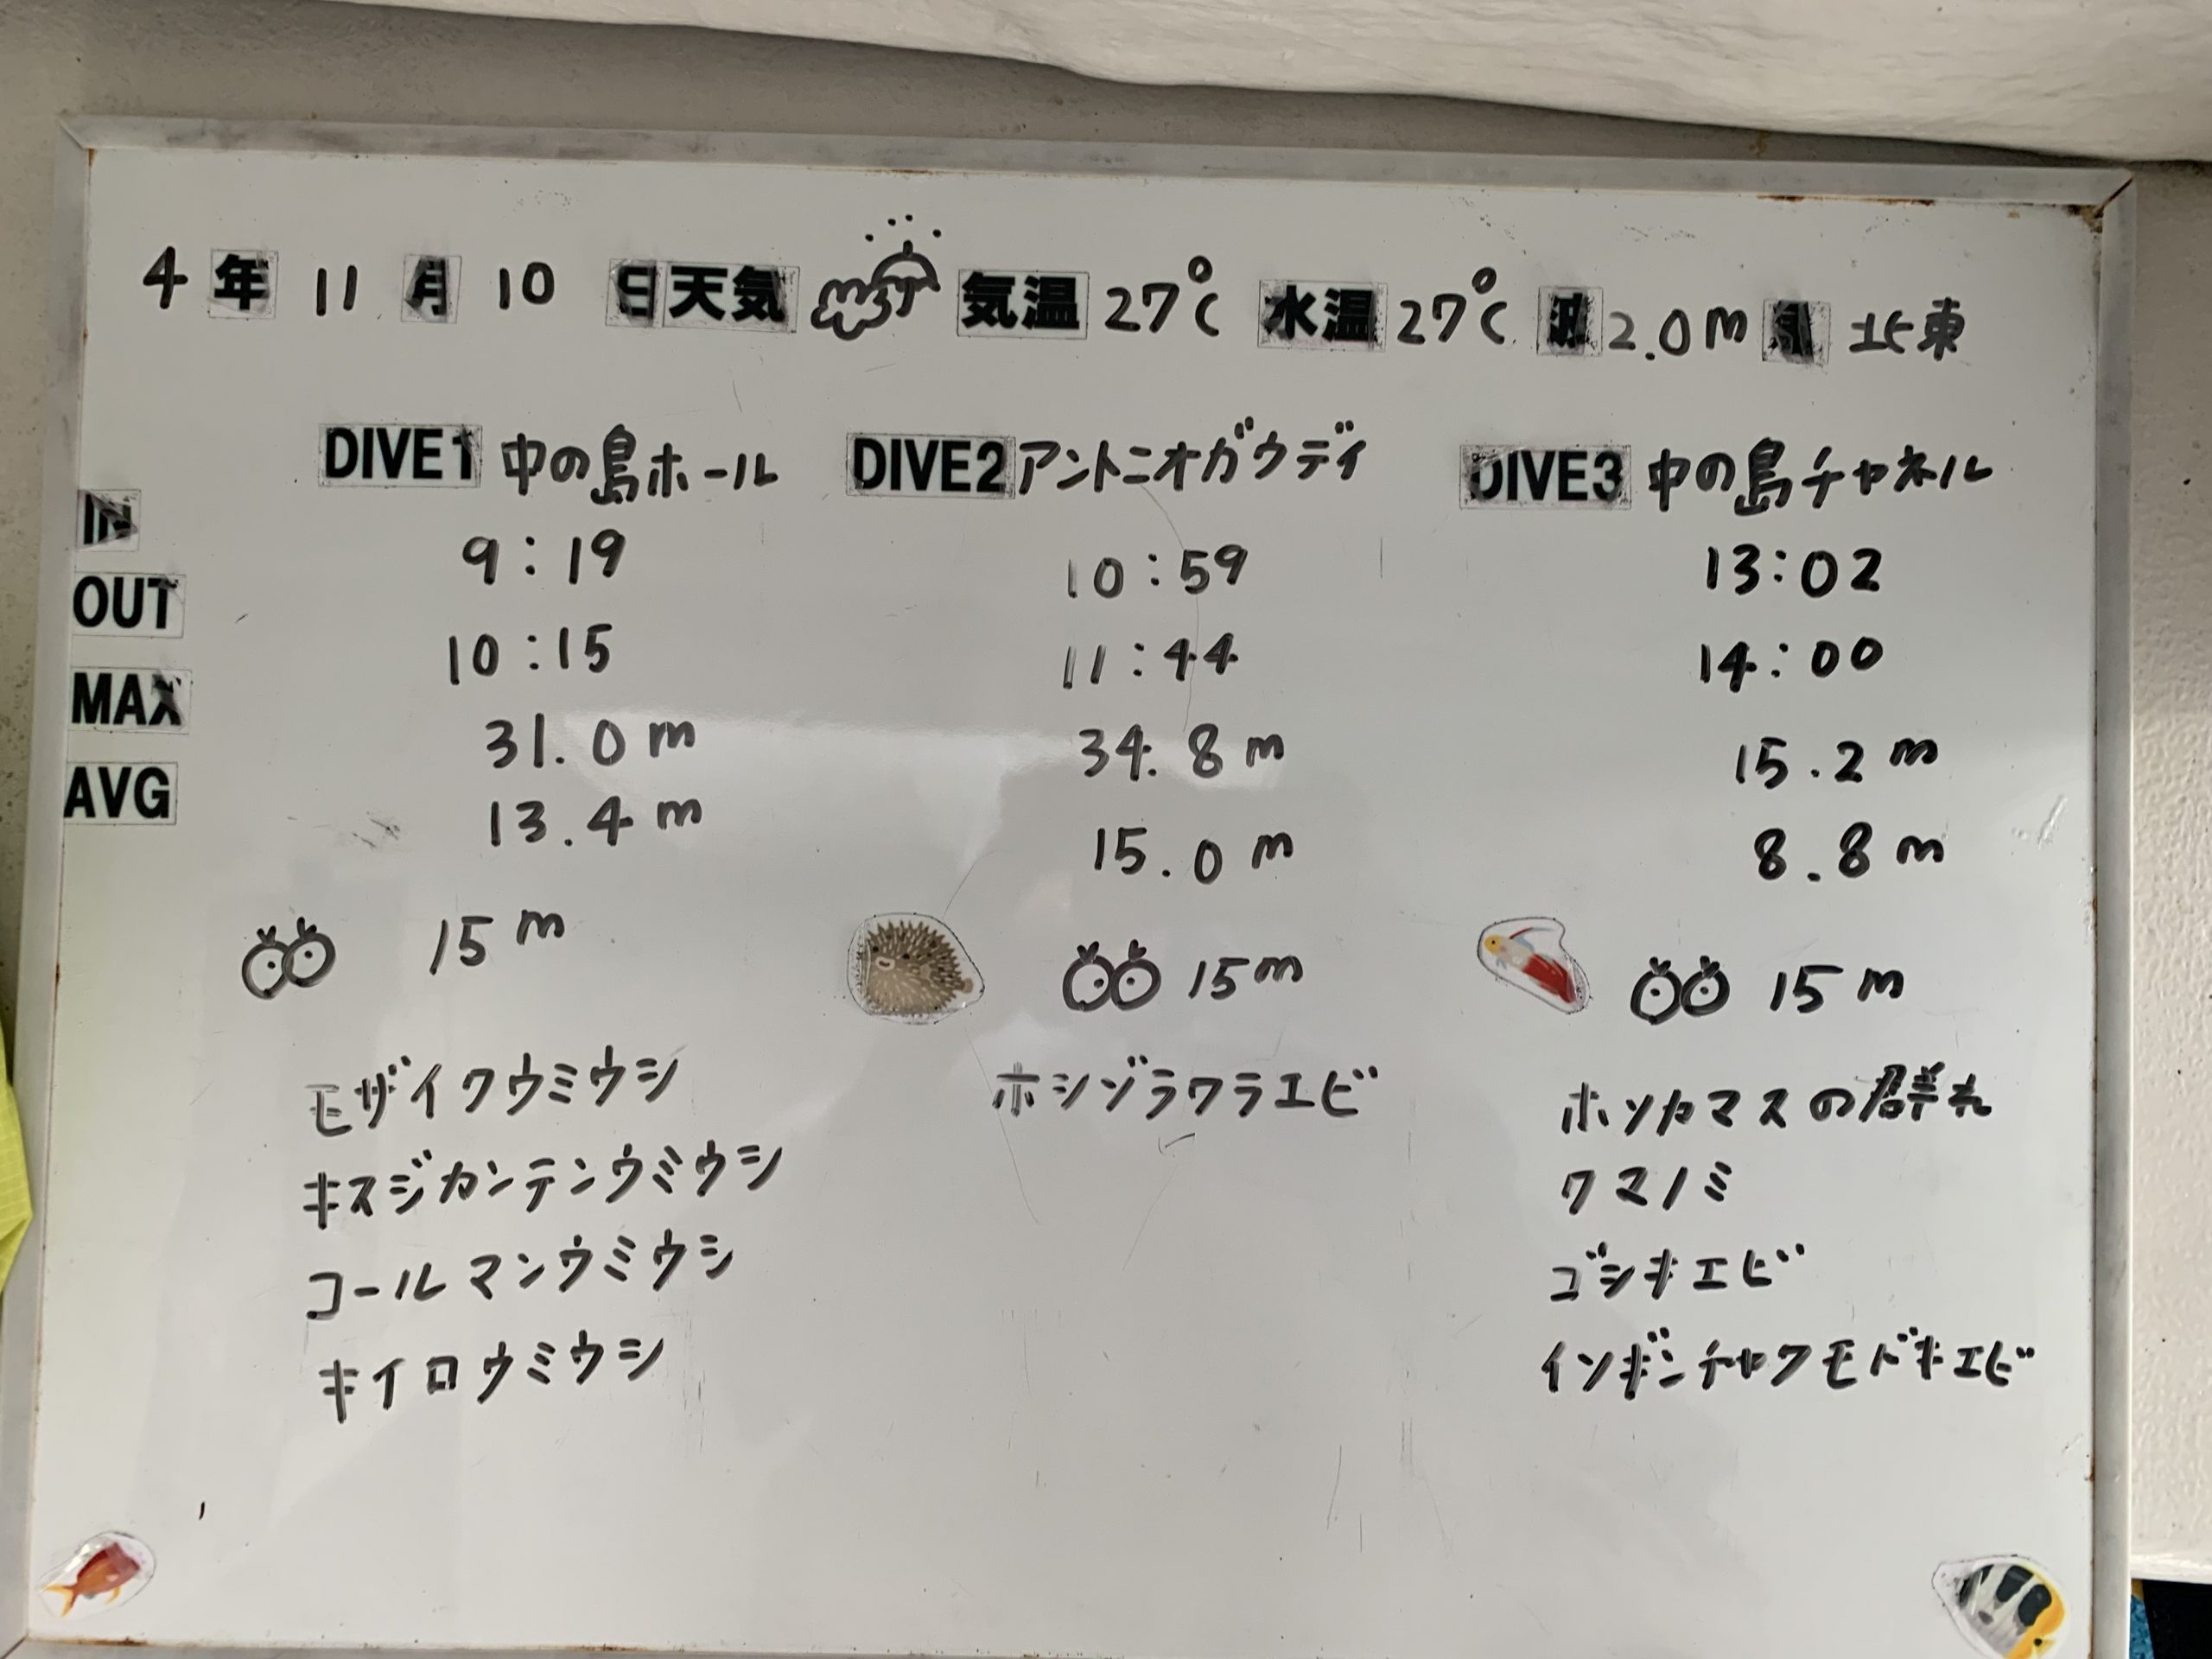 4年 11月 10日 天気 気温 27℃ 水温 27℃ 波 2.0m 風 北東
DIVE1 中の島ホール DIVE2 アントニオガウディ DIVE3 中の島チャネル
IN 9:19 10:59 13:02
OUT 10:15 11:44 14:00
MAX 31.0m 34.8m 15.2m
AVG 13.4m 15.0m 8.8m
15m 15m 15m
モザイクウミウシ ホシゾラワラエビ ホソカマスの群れ
キスジカンテンウミウシ クマノミ
コールマンウミウシ ゴシキエビ
キイロウミウシ イソギンチャクモドキエビ